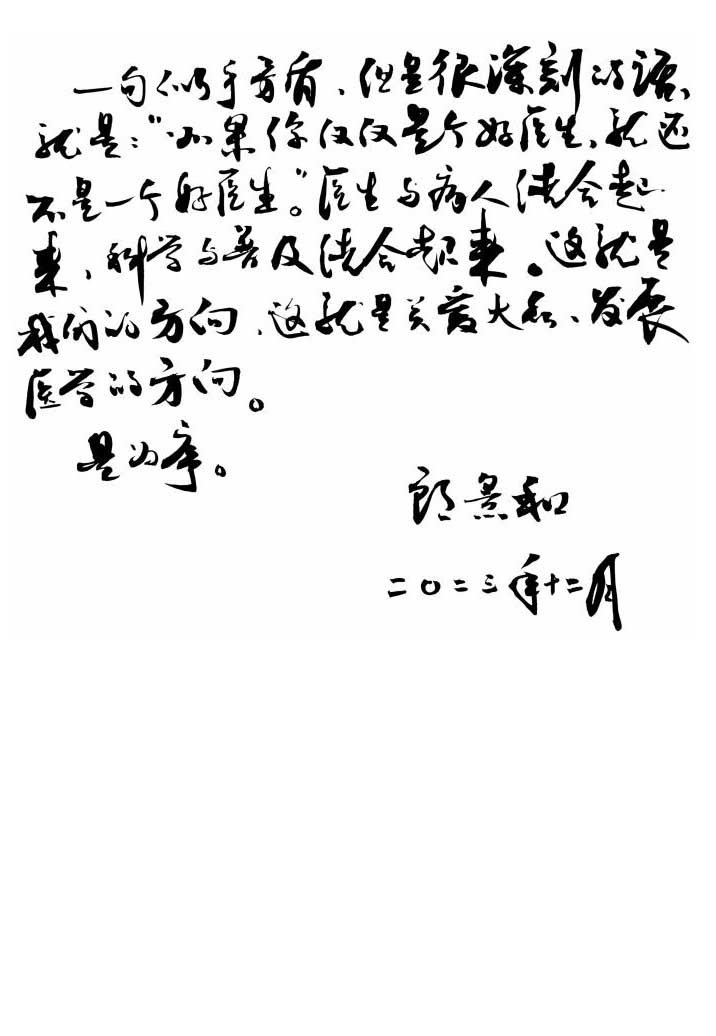 一句似乎矛盾、但是很深刻的话、
就是：“如果你仅仅是个好医生、就还
不是一个好医生。”医生与病人结合起
来，科学与普及结合起来。这就是
我们的方向，这就是关爱大众、发展
医学的方向。
是为序。
郎景和
二〇二三年十二月